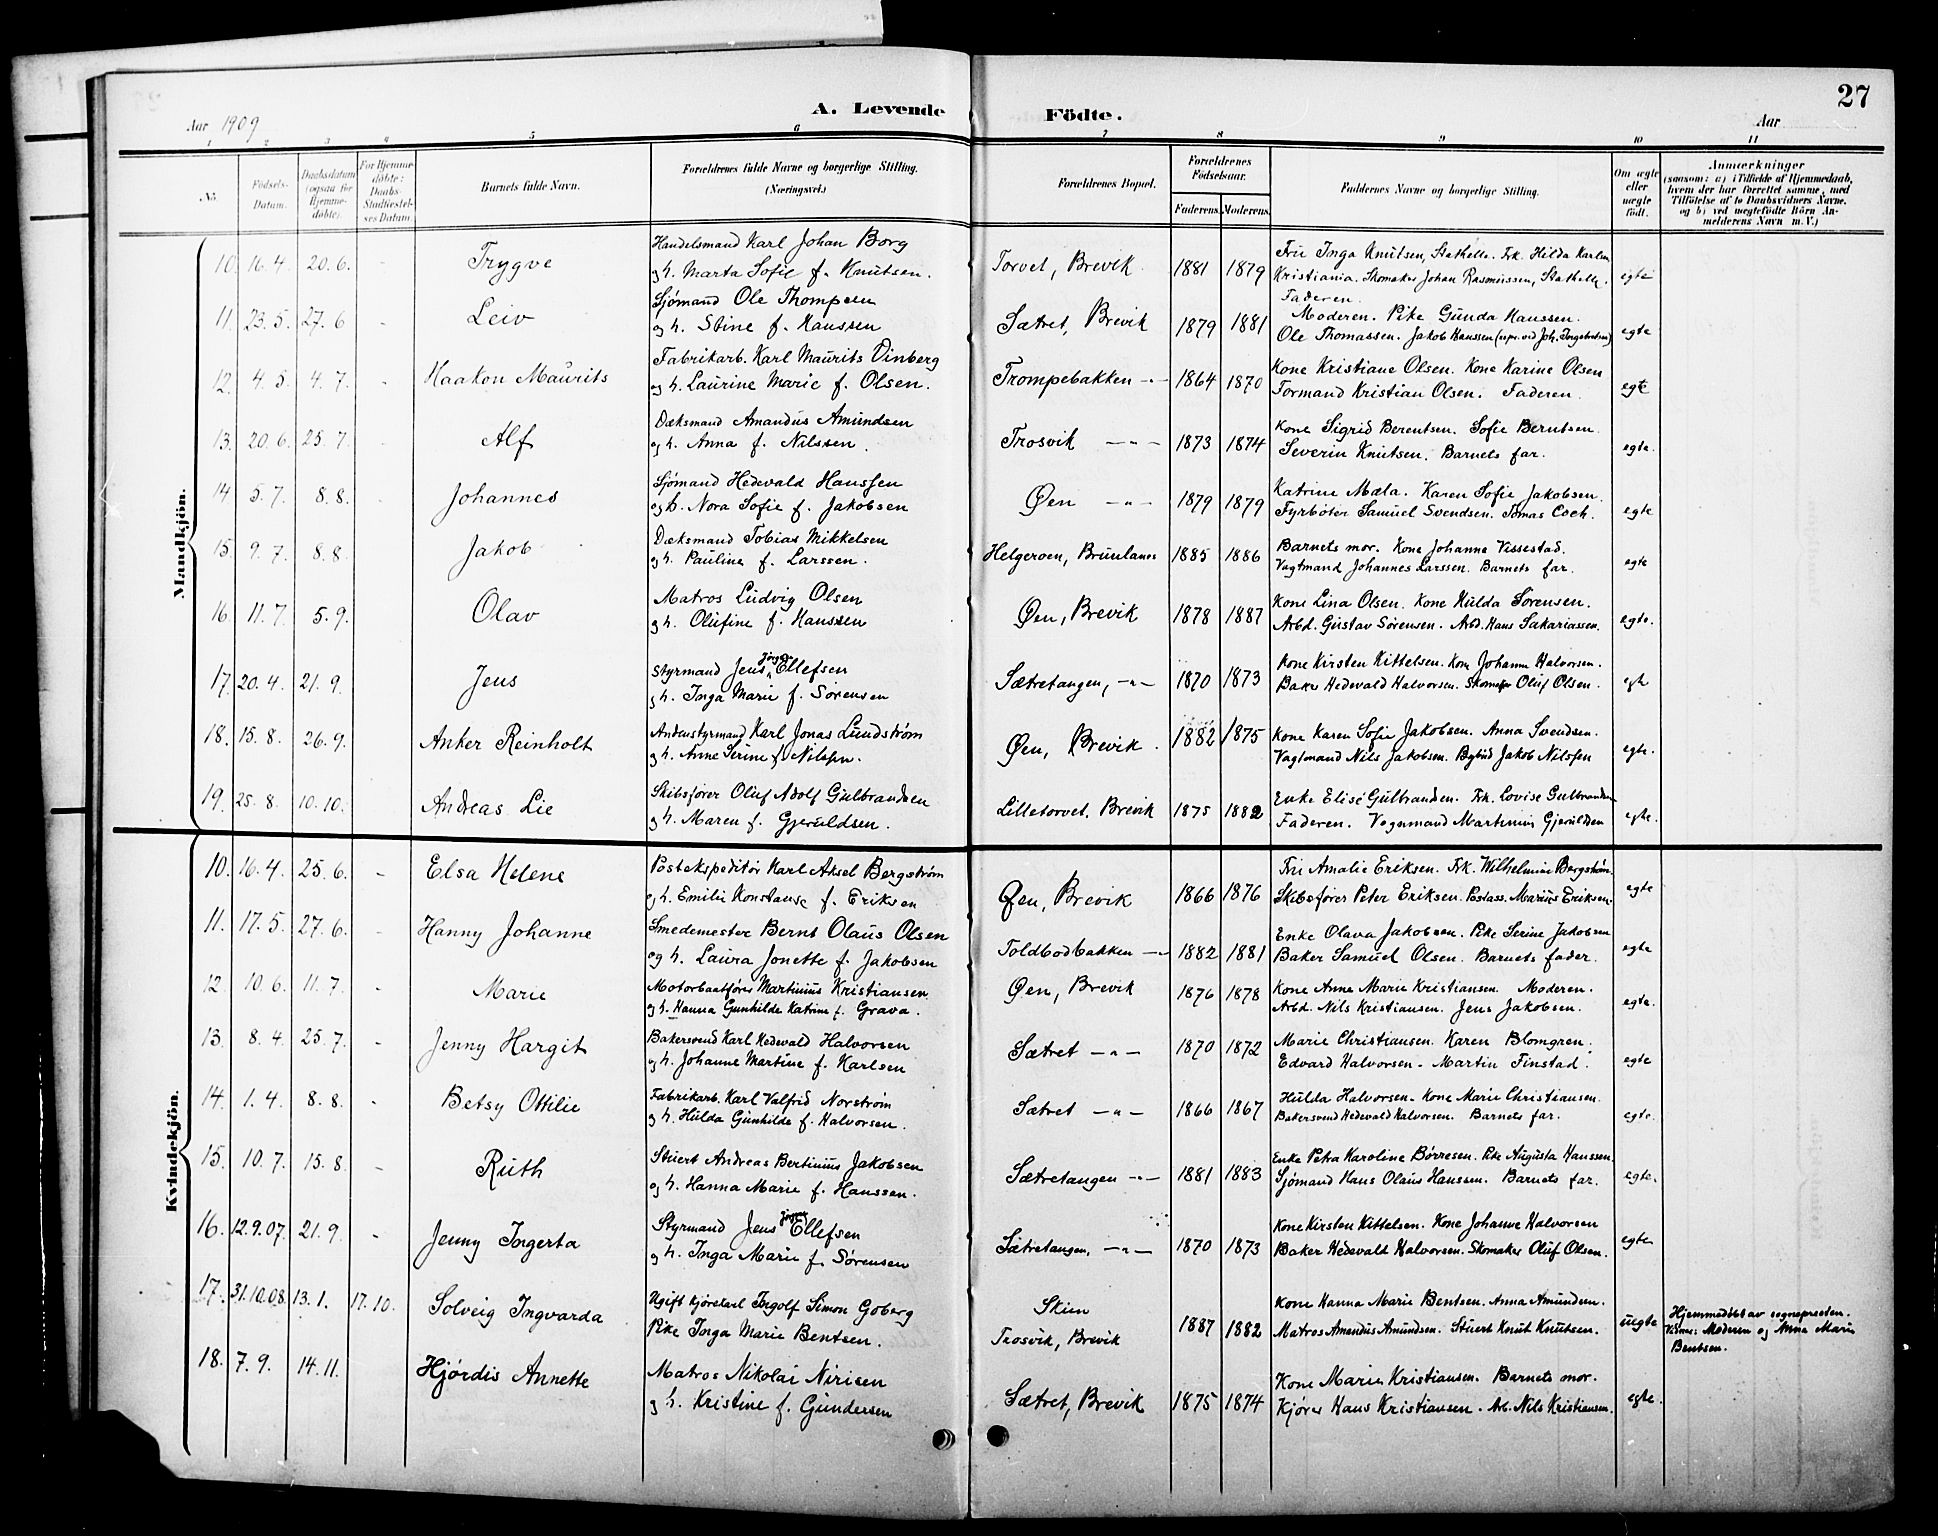 27
A. Levende Födte.
Aar 1909
Aar
1 2 3 4 5 6 7 8 9 10 11
No. Födsels-Datum. Daabsdatum (ogsaa for Hjemmedöbte). For Hjemmedöbte: Daabs-Stadfæstelses Datum. Barnets fulde Navn. Forældrenes fulde Navne og borgerlige Stilling. (Næringsvei.) Forældrenes Bopæl. Forældrenes Födselsaar. Faderens. Moderens. Faddernes Navne og borgerlige Stilling. Om ægte eller uægte födt. Anmærkninger (saasom: a) i Tilfælde af Hjemmedaab, hvem der har forrettet samme, med Tilföielse af to Daabsvidners Navne, og b) ved uægtefödte Börn Anmelderens Navn m.V.)
Mandkjön.
10. 16.4. 20.6. - Trygve Handelsmand Karl Johan Borg Torvet, Brevik. 1881 1879 Fru Inga Knutsen, Stathelle. Frk. Hilda Karlsen egte
og h. Marta Sofie f. Knutsen. Kristiania. Skomaker Johan Rasmussen, Stathelle. Faderen.
11. 23.5. 27.6 - Leiv Sjømand Ole Thompsen Sætret, Brevik 1879 1881 Moderen. Pike Gunda Hanssen. egte
og h. Stine f. Hanssen Ole Thomassen. Jakob Hanssen (repr. ved Joh. Ingebretsen)
12. 4.5. 4.7. - Haakon Maurits Fabrikarb. Karl Maurits Vinberg Trompebakken -"- 1864 1870 Kone Kristiane Olsen. Kone Karine Olsen egte
og h. Laurine Marie f. Olsen. Formand Kristian Olsen. Faderen.
13. 20.6. 25.7. - Alf Dæksmand Amandus Amundsen Trosvik -"- 1873 1874 Kone Sigrid Berentsen. Sofie Berntsen. egte.
og h. Anna f. Nilssen. Severin Knutsen. Barnets far.
14 5.7. 8.8. - Johannes Sjømand Hedevald Hanssen Øen -"- 1879 1879 Katrine Mæla. Karen Sofie Jakobsen. egte
og h. Nora Sofie f. Jakobsen Fyrbøter Samuel Svendsen. Tomas Coch.
15. 9.7. 8.8. Jakob Dæksmand Tobias Mikkelsen Helgeroen, Brunlanes 1885 1886 Barnets mor. Kone Johanne Vissestad. egte
og h. Pauline f. Larssen. Vagtmand Johannes Larssen. Barnets far.
16. 11.7. 5.9. Olav Matros Ludvig Olsen Øen, Brevik 1878 1887 Kone Lina Olsen. Kone Hulda Sørensen. egte.
og h. Olufine f. Hanssen Arbd. Gustav Sørensen. Arbd. Hans Sakariassen.
17. 20.4. 21.9. Jens Styrmand Jens Jørgen Ellefsen Sætretangen, -"- 1870 1873 Kone Kirsten Kittelsen. Kone Johanne Halvorsen. egte
og h. Inga Marie f. Sørensen Baker Hedevald Halvorsen. Skomaker Oluf Olsen.
18. 15.8. 26.9. Anker Reinholt Andenstyrmand Karl Jonas Lundstrøm Øen, Brevik. 1882 1875 Kone Karen Sofie Jakobsen. Anna Svendsen. egte.
og h. Anne Serine f. Nilssen. Vagtmand Nils Jakobsen. Bybud Jakob Nilssen
19. 25.8. 10.10. Andreas Lie Skibsfører Oluf Adolf Gulbrandsen Lilletorvet, Brevik 1875 1882 Enke Elise Gulbrandsen. Frk. Lovise Gulbrandsen egte.
og h. Maren f. Gjeruldsen. Faderen. Vognmand Martinius Gjeruldsen
Kvindekjön.
10. 16.4. 25.6. - Elsa Helene Postekspeditør Karl Aksel Bergstrøm Øen, Brevik 1866 1876 Fru Amalie Eriksen. Frk. Wilhelmine Bergstrøm. egte
og h. Emilie Konstanse f. Eriksen Skibsfører Peter Eriksen. Postass. Marius Eriksen.
11. 17.5. 27.6. - Hanny Johanne Smedemester Bernt Olaus Olsen Toldbodbakken -"- 1882 1881 Enke Olava Jakobsen. Pike Serine Jakobsen egte
og h. Laura Jonette f. Jakobsen Baker Samuel Olsen. Barnets fader.
12. 10.6. 11.7. - Marie Motorbaatfører Martinius Kristiansen Øen, Brevik 1876 1878 Kone Anne Marie Kristiansen. Moderen. egte.
og h. Hanna Gunhilde Katrine f. Grava. Arbd. Nils Kristiansen. Jens Jakobsen.
13. 8.4. 25.7. - Jenny Hargit Bakersvend Karl Hedevald Halvorsen Sætret -"- 1870 1872 Marie Christiansen. Karen Blomgren. egte
og h. Johanne Martine f. Karlsen Edvard Halvorsen. Martin Finstad.
14. 1.4. 8.8. - Betsy Ottilie Fabrikarb. Karl Valfrid Norstrøm Sætret -"- 1866 1867 Hulda Halvorsen. Kone Marie Christiansen. egte.
og h. Hulda Gunhilde f. Halvorsen. Bakersvend Hedevald Halvorsen. Barnets far.
15. 10.7. 15.8. - Ruth Stuert Andreas Bertinius Jakobsen Sætretangen -"- 1881 1883 Enke Petra Karoline Børresen. Pike Augusta Hanssen. egte.
og h. Hanna Marie f. Hanssen. Sjømand Hans Olaus Hanssen. Barnets far.
16. 12.9.07. 21.9. - Jenny Ingerta Styrmand Jens Jørgen Ellefsen Sætretangen, -"- 1870 1873 Kone Kirsten Kittelsen. Kone Johanne Halvorsen egte
og h. Inga Marie f. Sørensen Baker Hedevald Halvorsen. Skomaker Oluf Olsen.
17. 31.10.08. 13.1. 17.10. Solveig Ingvarda Ugift kjørekarl Ingolf Simon Goberg Skien 1887 1882 Kone Hanna Marie Bentsen. Anna Amundsen. uegte Hjemmedøbt av sognepresten.
Pike Inga Marie Bentsen. Trosvik, Brevik Matros Amandus Amundsen. Stuert Knut Knutsen. Vidner: Moderen og Anna Marie Bentsen.
18. 7.9. 14.11. Hjørdis Annette Matros Nikolai Nirisen Sætret, Brevik 1875 1874 Kone Marie Kristiansen. Barnets mor. egte.
og h. Kristine f. Gundersen Kjører Hans Kristiansen. Arb. Nils Kristiansen.